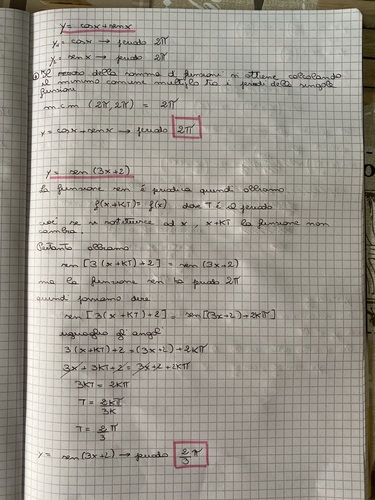 y = cosx + senx
y₁ = cosx → periodo 2π
y₂ = senx → periodo 2π
Il della somma di funzioni si ottiene calcolando
il minimo comune multiplo tra i periodi delle singole
funzioni
m.c.m (2π, 2π) = 2π
y = cosx + senx → periodo 2π
y = sen (3x+2)
La funzione sen è periodica quindi abbiamo
f(x+KT) = f(x) dove T è il periodo
cioè se si sostituisce ad x, x+KT la funzione non
cambia.
Pertanto abbiamo
sen [3(x+KT)+2] = sen (3x+2)
ma la funzione sen ha periodo 2π
quindi possiamo dire
sen [3(x+KT)+2] = sen [(3x+2)+2Kπ]
uguaglio gli angoli
3(x+KT)+2 = (3x+2)+2Kπ
3x + 3KT + 2 = 3x + 2 + 2Kπ
3KT = 2Kπ
T = 2Kπ/3K
T = 2/3 π
y = sen (3x+2) → periodo 2/3 π